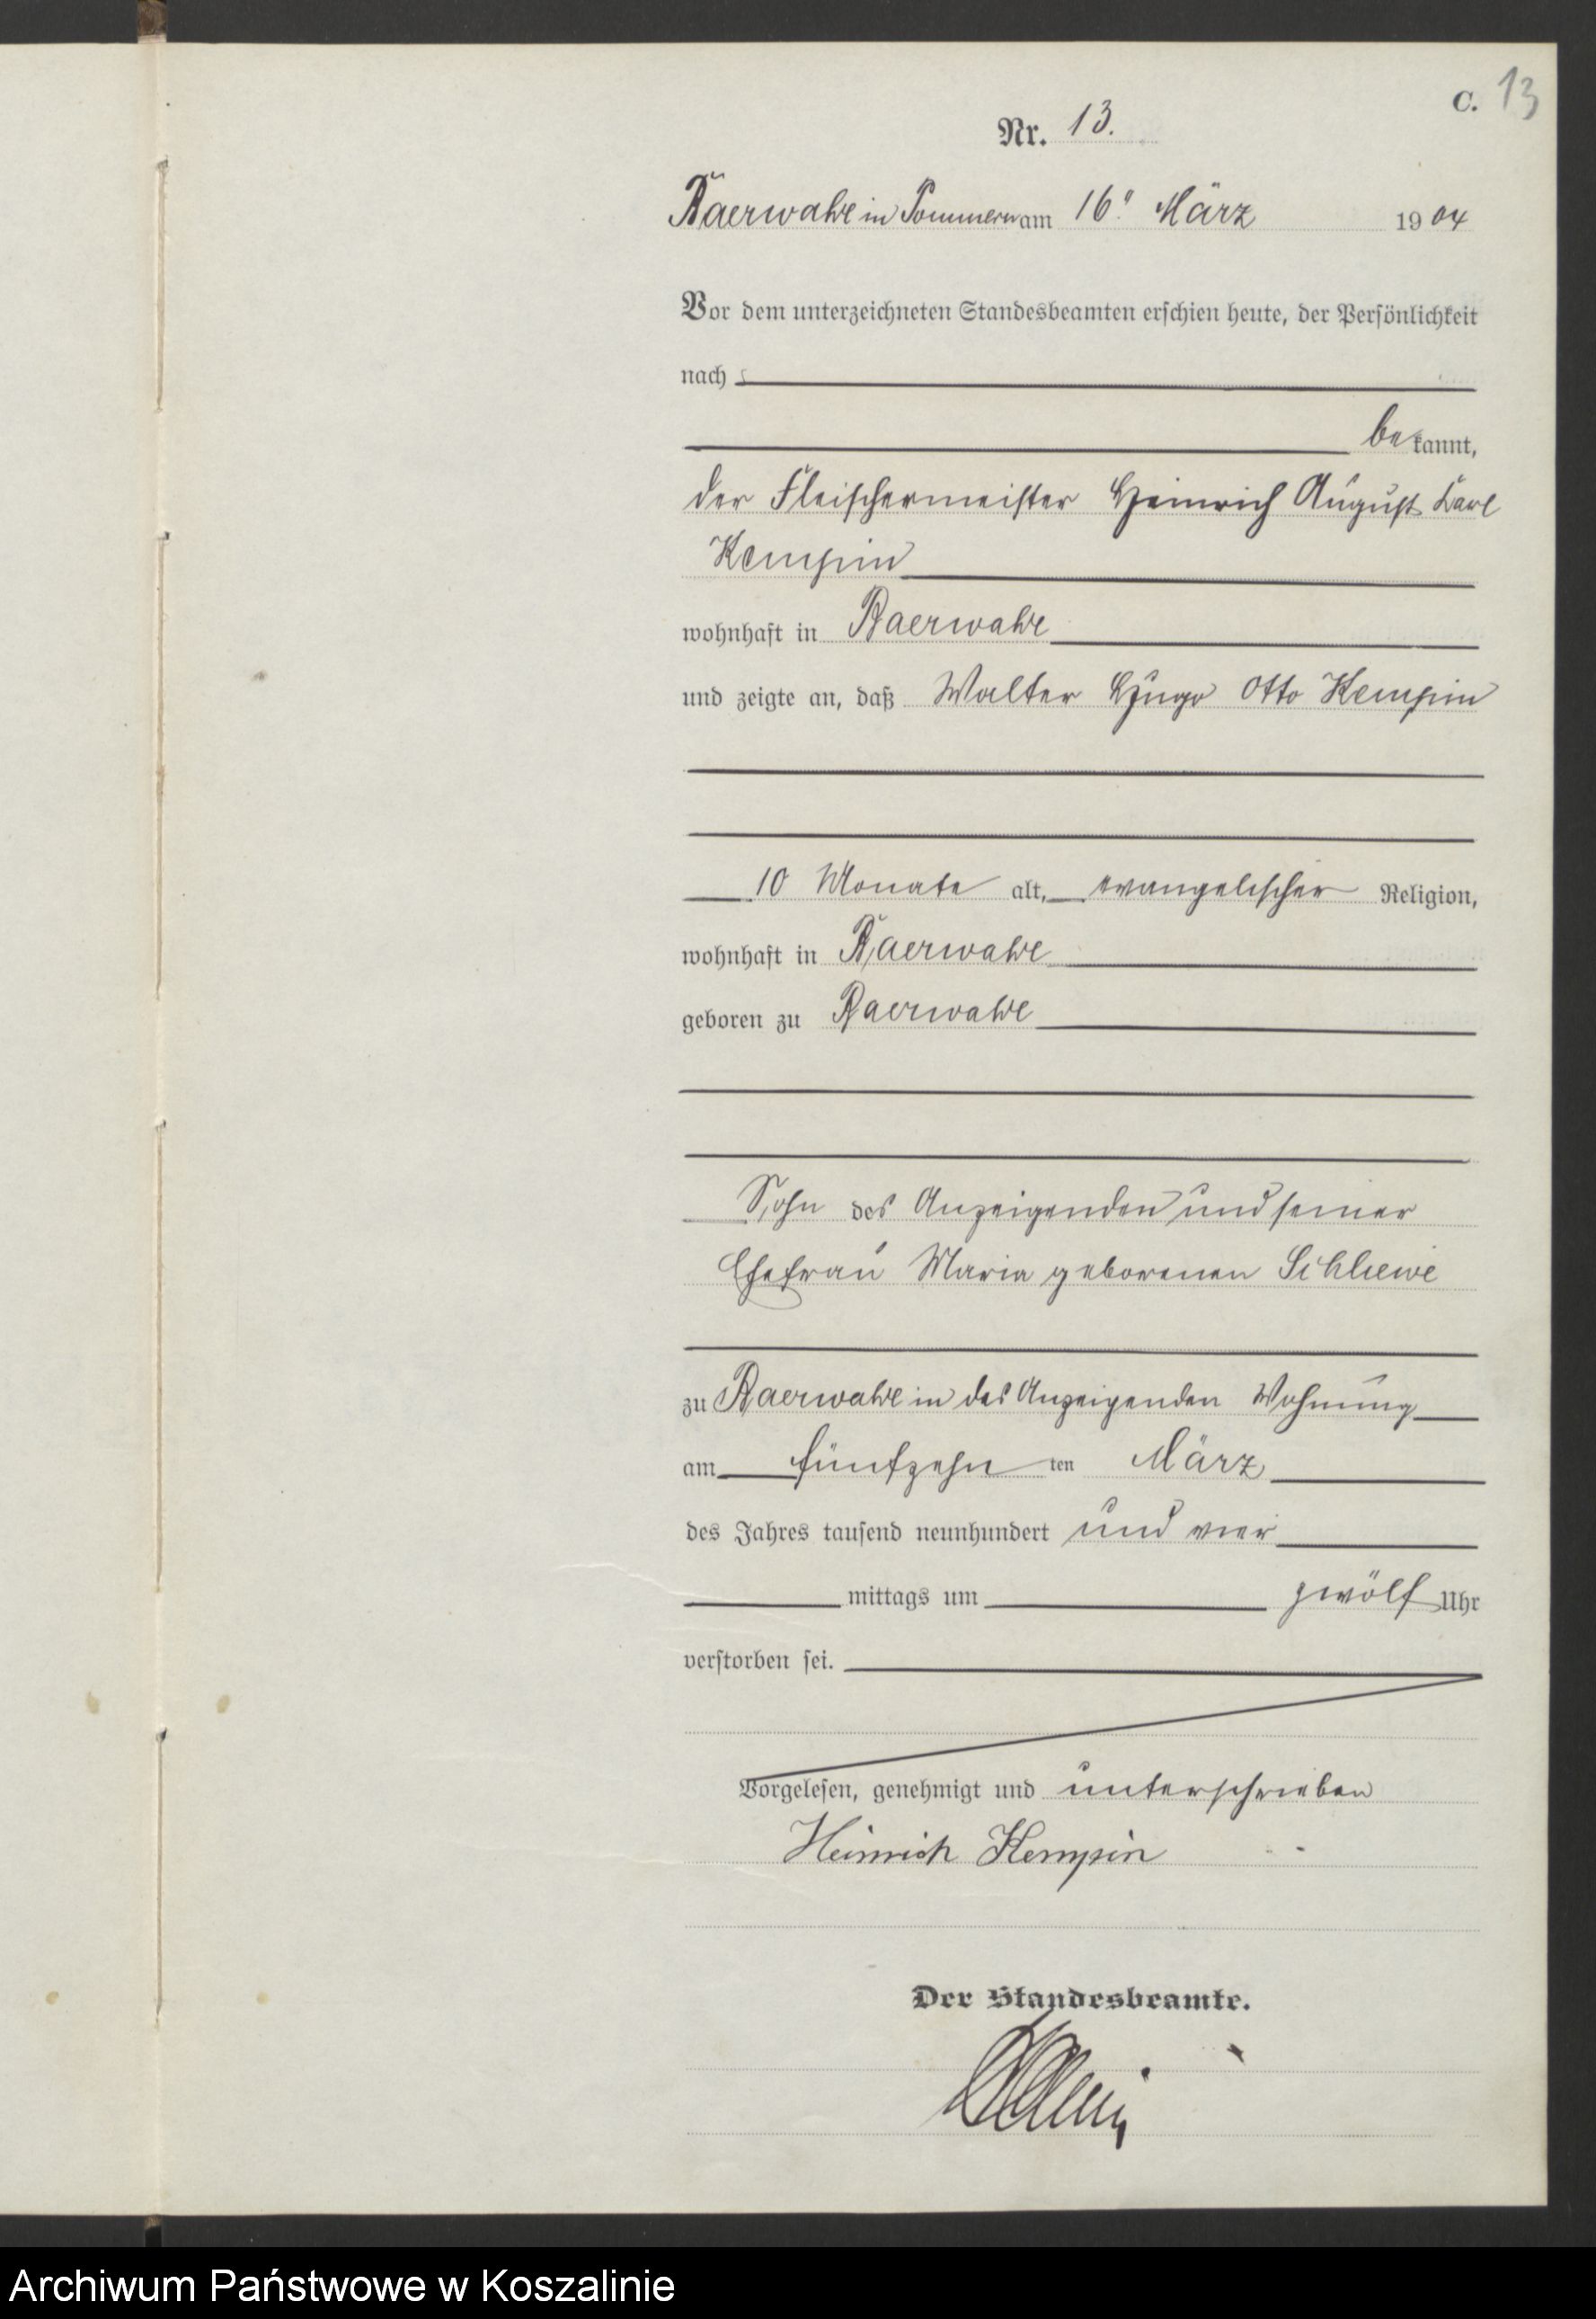 C. 13
Nr. 13.
Baerwalde in Pommern am 16ᵗ März 1904
Vor dem unterzeichneten Standesbeamten erschien heute, der Persönlichkeit
nach
bekannt,
der Fleischermeister Heinrich August Karl
Kempin
wohnhaft in Baerwalde
und zeigte an, daß Walter Hugo Otto Kempin
10 Monate alt, evangelischer Religion,
wohnhaft in Baerwalde
geboren zu Baerwalde
Sohn des Anzeigenden und seiner
Ehefrau Maria geborenen Schliewe
zu Baerwalde in des Anzeigenden Wohnung
am fünfzehn ten März
des Jahres tausend neunhundert und vier
mittags um zwölf Uhr
verstorben sei.
Vorgelesen, genehmigt und unterschrieben
Heinrich Kempin
Der Standesbeamte.
Archiwum Państwowe w Koszalinie